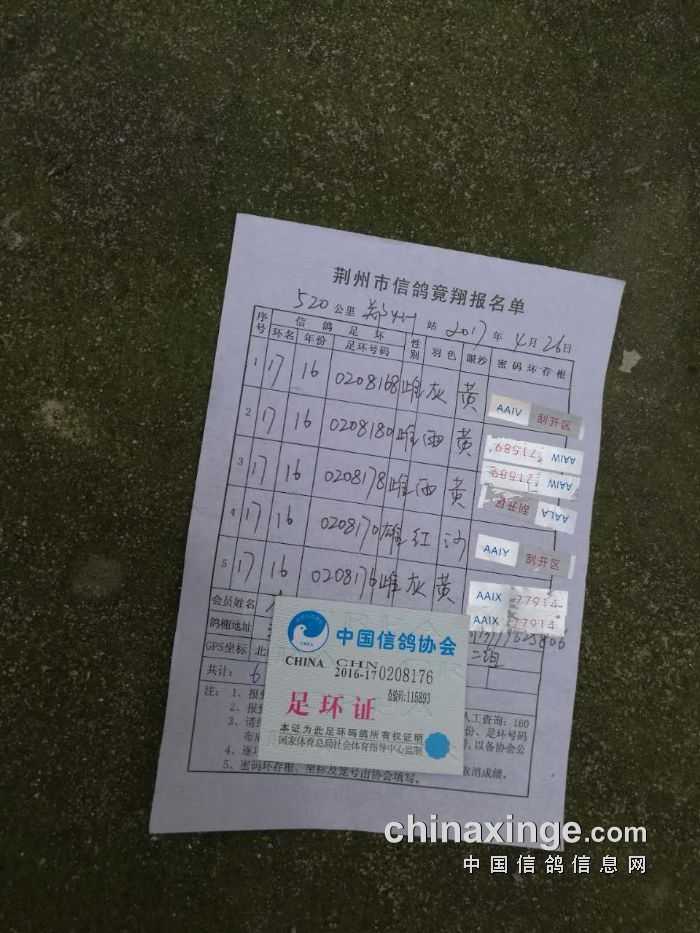 荆州市信鸽竟翔报名单
520公里 郑州 站 2017年4月26日
序号 信鸽足环 性别 羽色 眼沙 密码环存根
环名 年份 足环号码
1 17 16 0208168 雌 灰 黄 AAIV 刮开区
2 17 16 0208180 雌 西 黄 AAIW 71589
AAIW 71589
3 17 16 0208178 雌 西 黄 AALA 刮开区
4 17 16 0208170 雄 红 沙 AAIY 刮开区
5 17 16 0208176 雌 灰 黄 AAIX 77914
AAIX 77914
会员姓名
鸽棚地址
GPS坐标 北
二组
共计: 6
注: 1、报
人工查询: 160
2、报
份、足环号码
3、请
以备协会公
布
4、逐
取消成绩。
5、密码环存根、坐标及笼号由协会填写。
中国信鸽协会
CHINA CHN
2016-17 0208176
115893
足环证
本证为此足环码鸽所有权证明
国家体育总局社会体育指导中心监制
chinaxinge.com
中国信鸽信息网